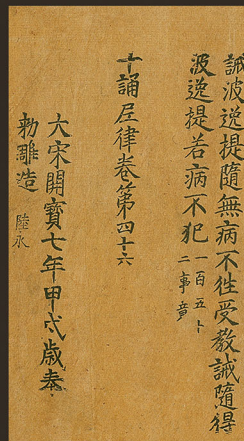 誡波逸提隨無病不徃受教誡隨得
波逸提若病不犯一百五十二事竟
十誦尼律卷第四十六
大宋開寶七年甲戌歲奉
勅雕造 陸永